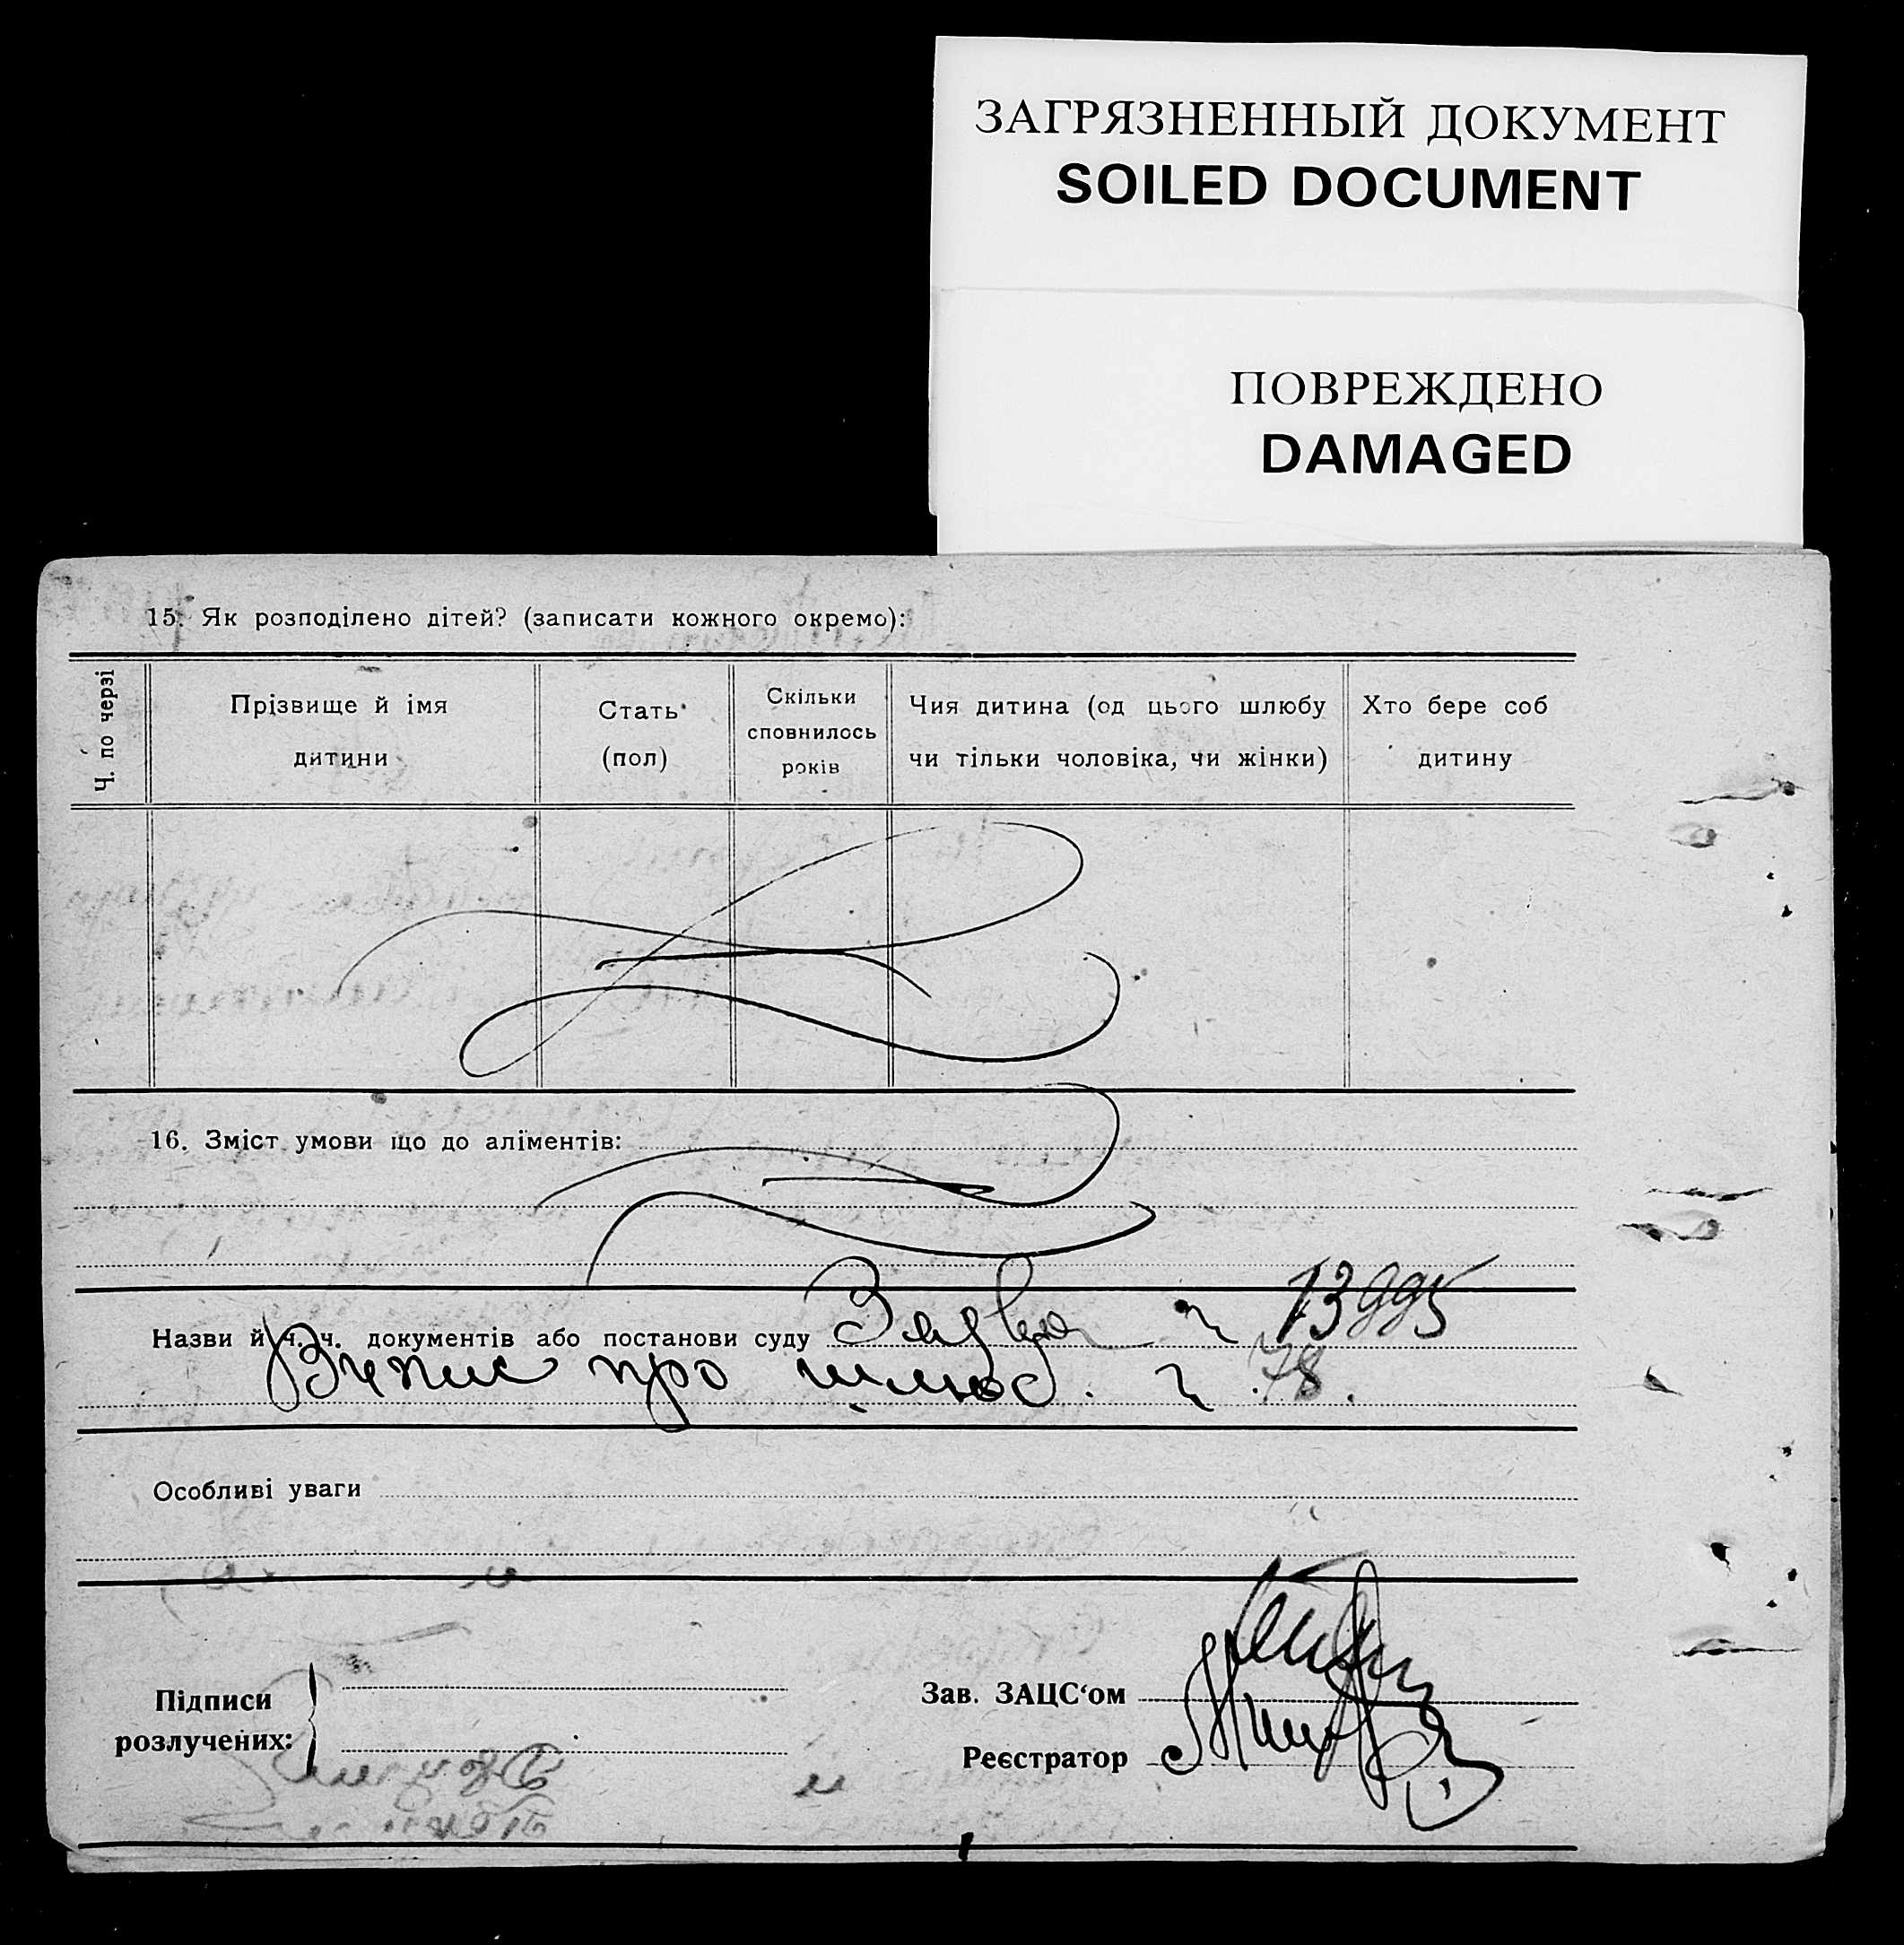 ЗАГРЯЗНЕННЫЙ ДОКУМЕНТ
SOILED DOCUMENT
ПОВРЕЖДЕНО
DAMAGED
15. Як розподілено дітей? (записати кожного окремо):
Ч. по черзі
Прізвище й імя дитини
Стать (пол)
Скільки сповнилось років
Чия дитина (од цього шлюбу чи тільки чоловіка, чи жінки)
Хто бере соб дитину
16. Зміст умови що до аліментів:
Назви й ч. ч. документів або постанови суду ч 13995
про шлюб. ч 78.
Особливі уваги
Підписи розлучених:
Зав. ЗАЦС‘ом
Реєстратор